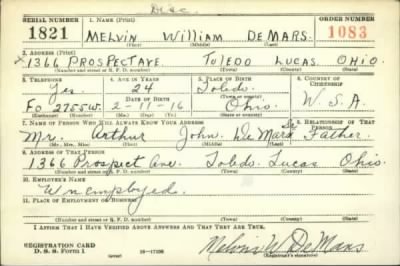 Disc.
SERIAL NUMBER 1. NAME (Print) ORDER NUMBER
1821 MELVIN William DE MARS. 1083
(First) (Middle) (Last)
2. ADDRESS (Print)
x1366 PROSPECT AVE. TOLEDO LUCAS OHIO.
(Number and street or R. F. D. number) (Town) (County) (State)
3. TELEPHONE 4. AGE IN YEARS 5. PLACE OF BIRTH 6. COUNTRY OF CITIZENSHIP
Yes. 24 Toledo.
DATE OF BIRTH (Town or county)
Fo 2755W. 2-11-16 Ohio. U.S.A.
(Exchange) (Number) (Mo.) (Day) (Yr.) (State or country)
7. NAME OF PERSON WHO WILL ALWAYS KNOW YOUR ADDRESS 8. RELATIONSHIP OF THAT PERSON
Mr. Arthur John De Mars Sr. Father.
(Mr., Mrs., Miss) (First) (Middle) (Last)
9. ADDRESS OF THAT PERSON
1366 Prospect Ave. Toledo. Lucas Ohio.
(Number and street or R. F. D. number) (Town) (County) (State)
10. EMPLOYER'S NAME
Unemployed.
11. PLACE OF EMPLOYMENT OR BUSINESS
(Number and street or R. F. D. number) (Town) (County) (State)
I AFFIRM THAT I HAVE VERIFIED ABOVE ANSWERS AND THAT THEY ARE TRUE.
REGISTRATION CARD
D. S. S. Form 1 (over) 16-17105 Melvin W DeMars